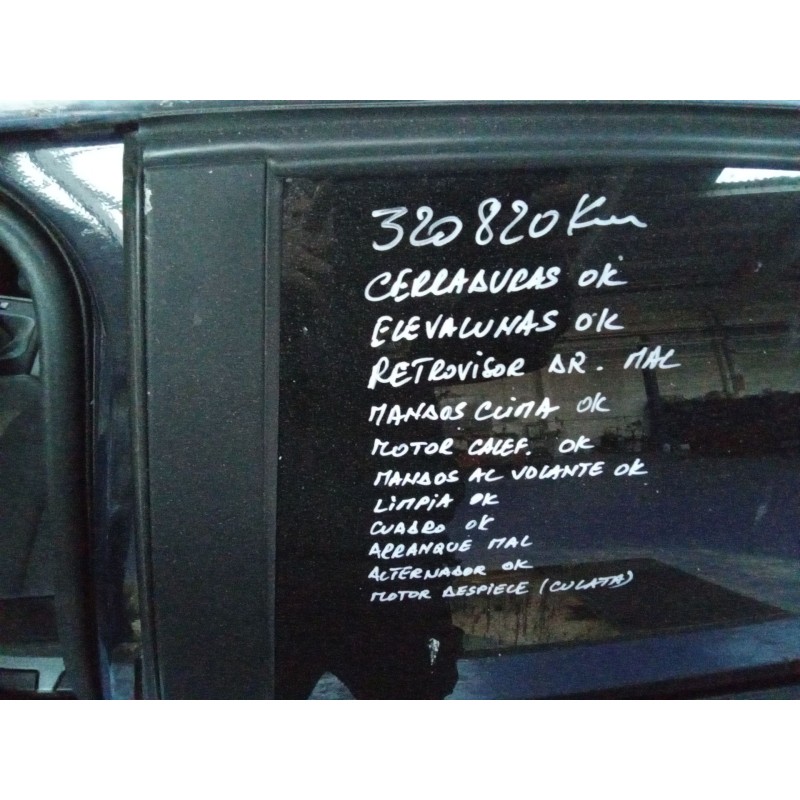 320820 Km
CERRADURAS OK
ELEVALUNAS OK
RETROVISOR DR. MAL
MANDOS CLIMA OK
MOTOR CALEF. OK
MANDOS AL VOLANTE OK
LIMPIA OK
CUADRO OK
ARRANQUE MAL
ALTERNADOR OK
MOTOR DESPIECE (CULATA)